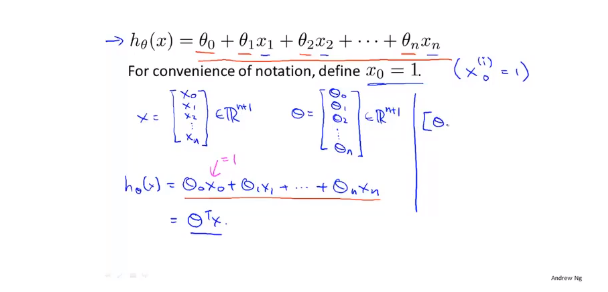 → hθ(x) = θ₀ + θ₁x₁ + θ₂x₂ + ⋯ + θₙxₙ
For convenience of notation, define x₀ = 1. (x₀⁽ⁱ⁾ = 1)
x = [x₀ x₁ x₂ ⋮ xₙ] ∈ ℝⁿ⁺¹ θ = [θ₀ θ₁ θ₂ ⋮ θₙ] ∈ ℝⁿ⁺¹ [θ.
=1
hθ(x) = θ₀x₀ + θ₁x₁ + ⋯ + θₙxₙ
= θᵀx.
Andrew Ng